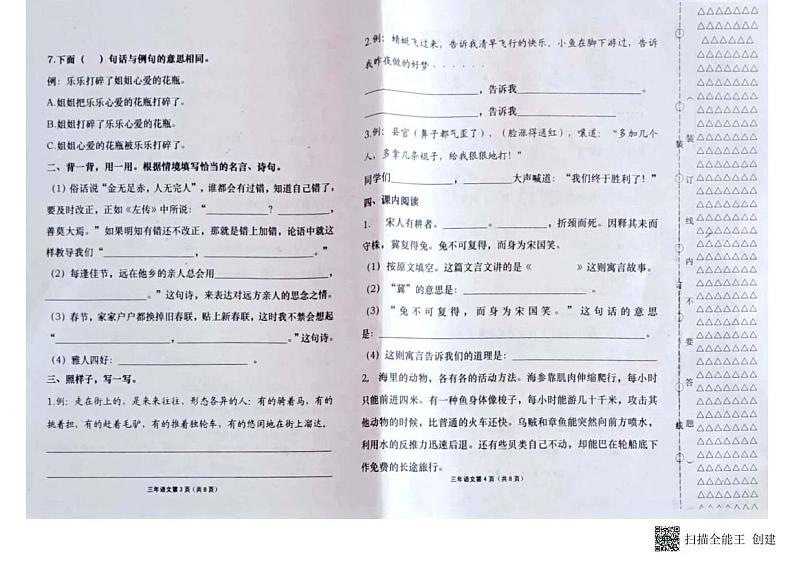 7.下面（    ）句话与例句的意思相同。
例：乐乐打碎了姐姐心爱的花瓶。
A.姐姐把乐乐心爱的花瓶打碎了。
B.姐姐打碎了乐乐心爱的花瓶。
C.姐姐心爱的花瓶被乐乐打碎了。
二、背一背，用一用。根据情境填写恰当的名言、诗句。
（1）俗话说“金无足赤，人无完人”，谁都会有过错，知道自己错了，
要及时改正，正如《左传》中所说：“____________？____________，
善莫大焉。”如果明知有错还不改正，那就是错上加错，论语中就这
样教导我们“____________，____________。”
（2）每逢佳节，远在他乡的亲人总会用____________，
____________。”这句诗，来表达对远方亲人的思念之情。
（3）春节，家家户户都换掉旧春联，贴上新春联，这时我不禁会想起
“____________，____________。”这句诗。
（4）雅人四好：____________。
三、照样子，写一写。
1.例：走在街上的，是来来往往，形态各异的人：有的骑着马，有的
挑着担，有的赶着毛驴，有的推着独轮车，有的悠闲地在街上溜达。
____________
____________
三年语文第 3 页（共 8 页）
2.例：蜻蜓飞过来，告诉我清早飞行的快乐，小鱼在脚下游过，告诉
我昨夜做的好梦······
____________，告诉我____________
____________，告诉我____________
3.例：县官（鼻子都气歪了），（脸涨得通红），嚷道：“多加几个
人，多拿几条棍子，给我狠狠地打！”
同学们____________，________大声喊道：“我们终于胜利了！”
四、课内阅读
1.  宋人有耕者。____________。________，折颈而死。因释其耒而
守株，冀复得兔。兔不可复得，而身为宋国笑。
（1）按原文填空。这篇文言文讲的是《        》这则寓言故事。
（2）“冀”的意思是：____________。
（3）“兔不可复得，而身为宋国笑。”这句话的意思
是：____________。
（4）这则寓言告诉我们的道理是：____________
2，海里的动物，各有各的活动方法。海参靠肌肉伸缩爬行，每小时
只能前进四米。有一种鱼身体像梭子，每小时能游几十千米，攻击其
他动物的时候，比普通的火车还快。乌贼和章鱼能突然向前方喷水，
利用水的反推力迅速后退。还有些贝类自己不动，却能巴在轮船底下
作免费的长途旅行。
三年语文第 4 页（共 8 页）
装
（装订线内不要答题）
扫描全能王 创建